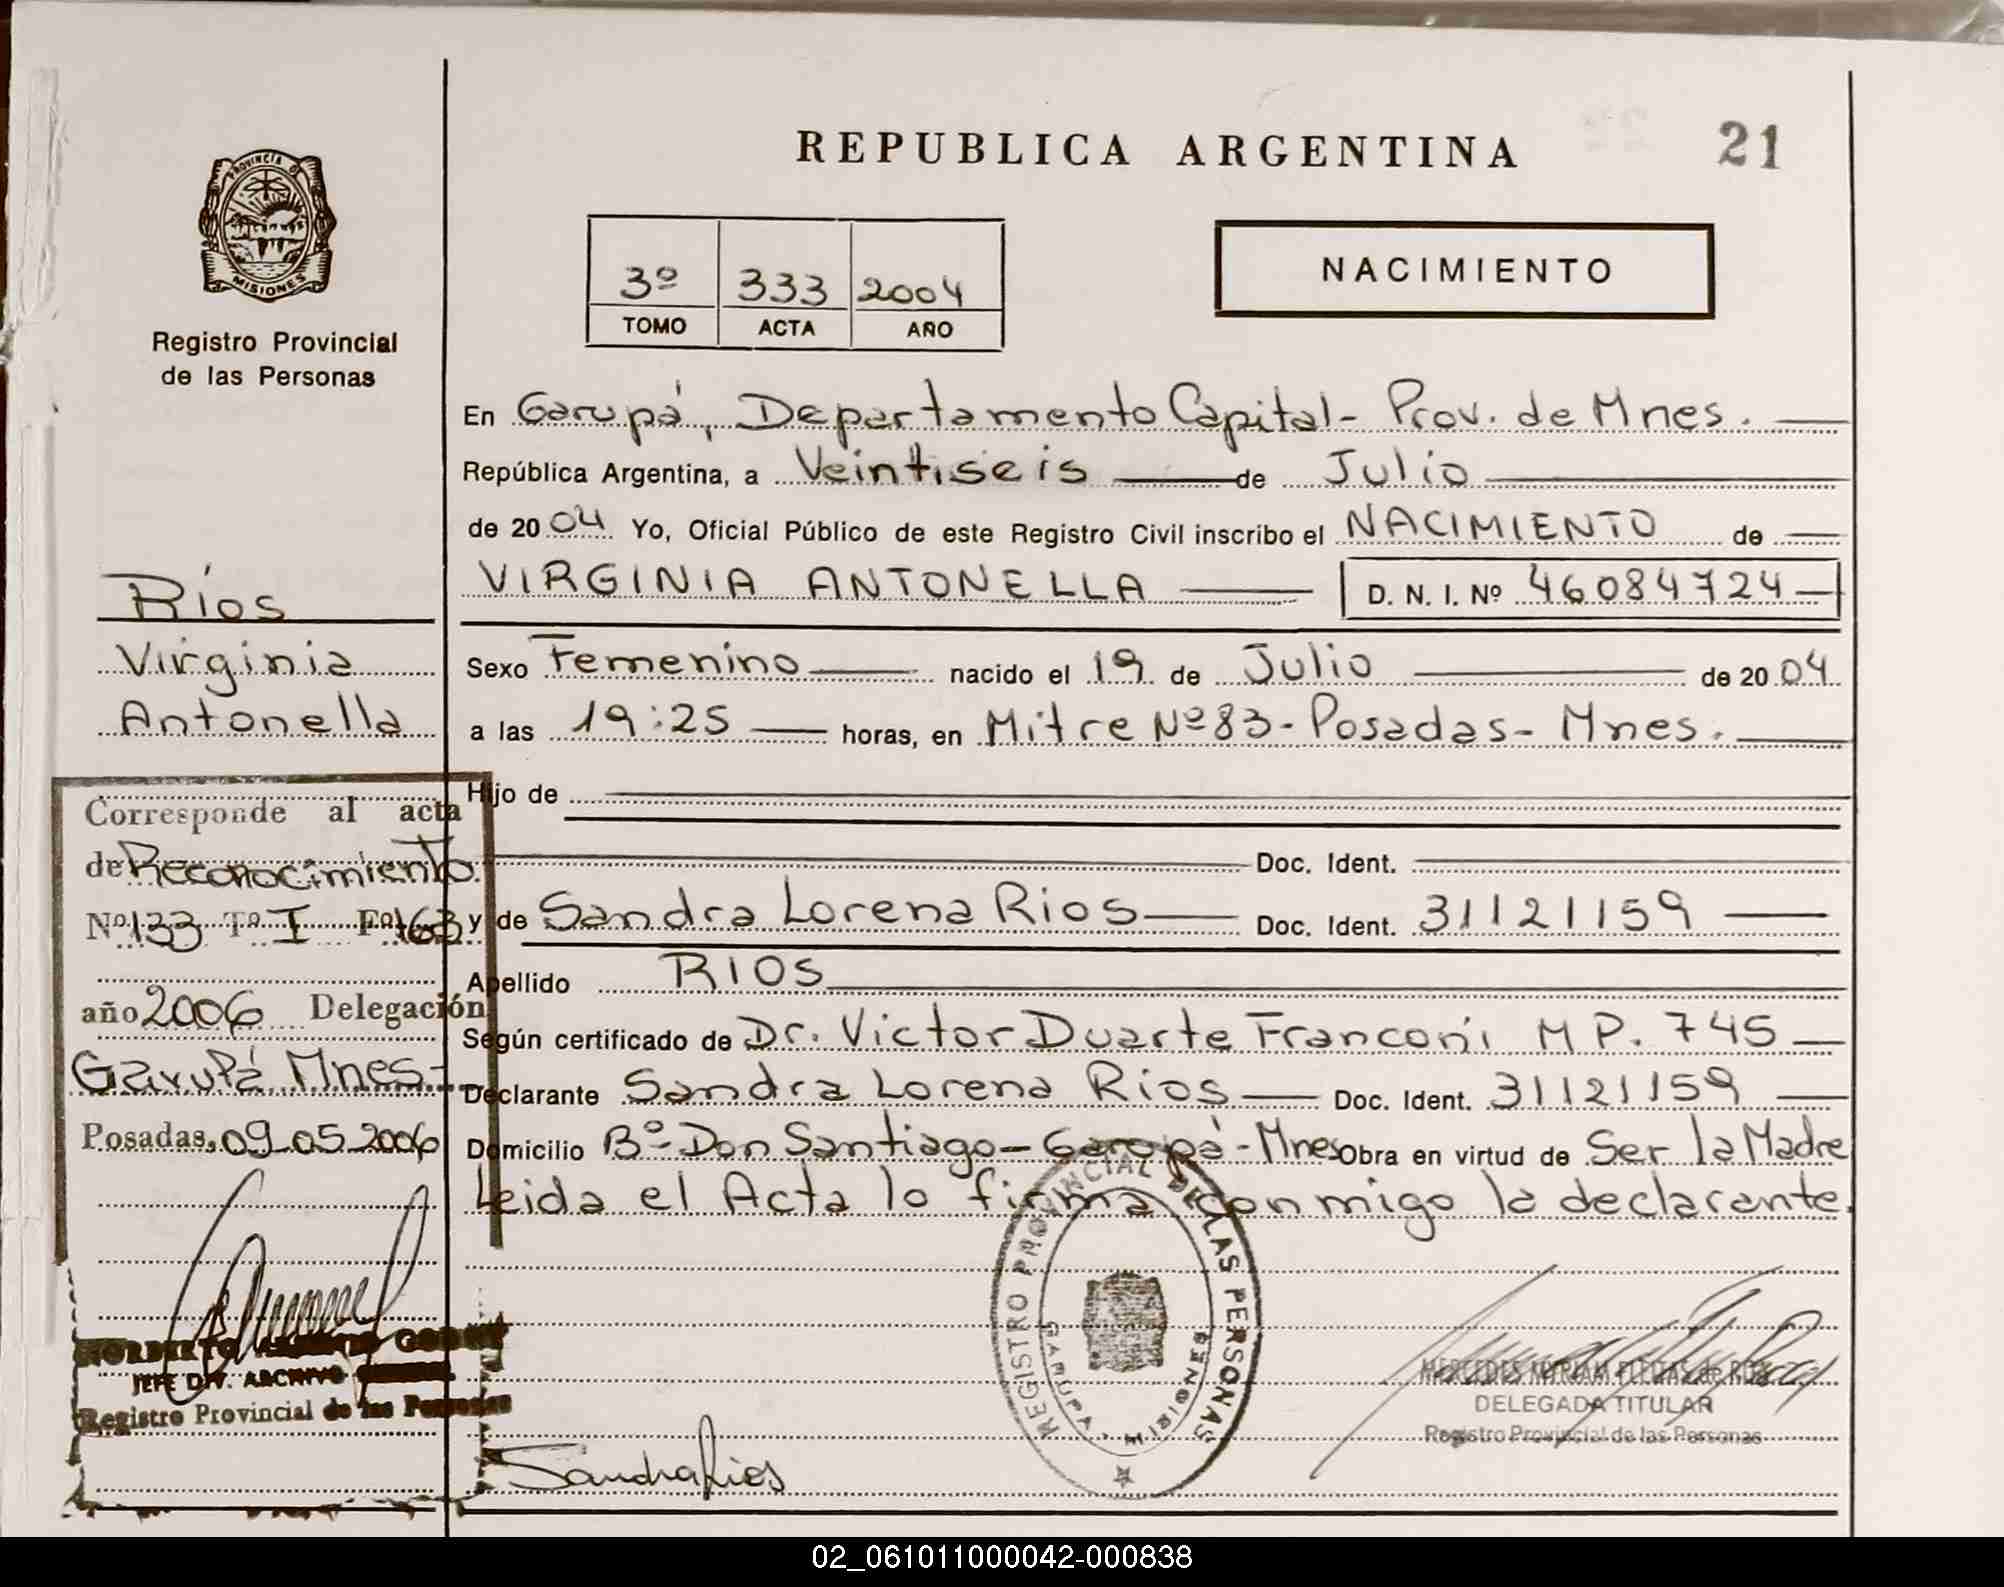 REPUBLICA ARGENTINA
21
PROVINCIA D
MISIONES
Registro Provincial
de las Personas
3º 333 2004
TOMO ACTA AÑO
NACIMIENTO
En Garupá, Departamento Capital- Prov. de Mnes.
República Argentina, a Veintiseis de Julio
de 2004 Yo, Oficial Público de este Registro Civil inscribo el NACIMIENTO de
VIRGINIA ANTONELLA D. N. I. Nº 46084724
Sexo Femenino nacido el 19 de Julio de 2004
a las 19:25 horas, en Mitre Nº 83- Posadas- Mnes.
Hijo de
Doc. Ident.
y de Sandra Lorena Rios Doc. Ident. 31121159
Apellido RIOS
Según certificado de Dr. Victor Duarte Franconi M P. 745
Declarante Sandra Lorena Rios Doc. Ident. 31121159
Domicilio Bº Don Santiago- Garupá- Mnes Obra en virtud de Ser la Madre
Leida el Acta lo firma conmigo la declarante.
Ríos
Virginia
Antonella
Corresponde al acta
de Reconocimiento.
Nº 133 Tº I Fº 163
año 2006 Delegación
Garupá Mnes.-
Posadas, 09-05-2006
JEFE DIV. ARCHIVO
Registro Provincial de las Personas
Sandra Rios
REGISTRO PROVINCIAL DE LAS PERSONAS
GARUPA - MISIONES
MERCEDES MYRIAM FLEITAS de
DELEGADA TITULAR
Registro Provincial de las Personas
02_061011000042-000838